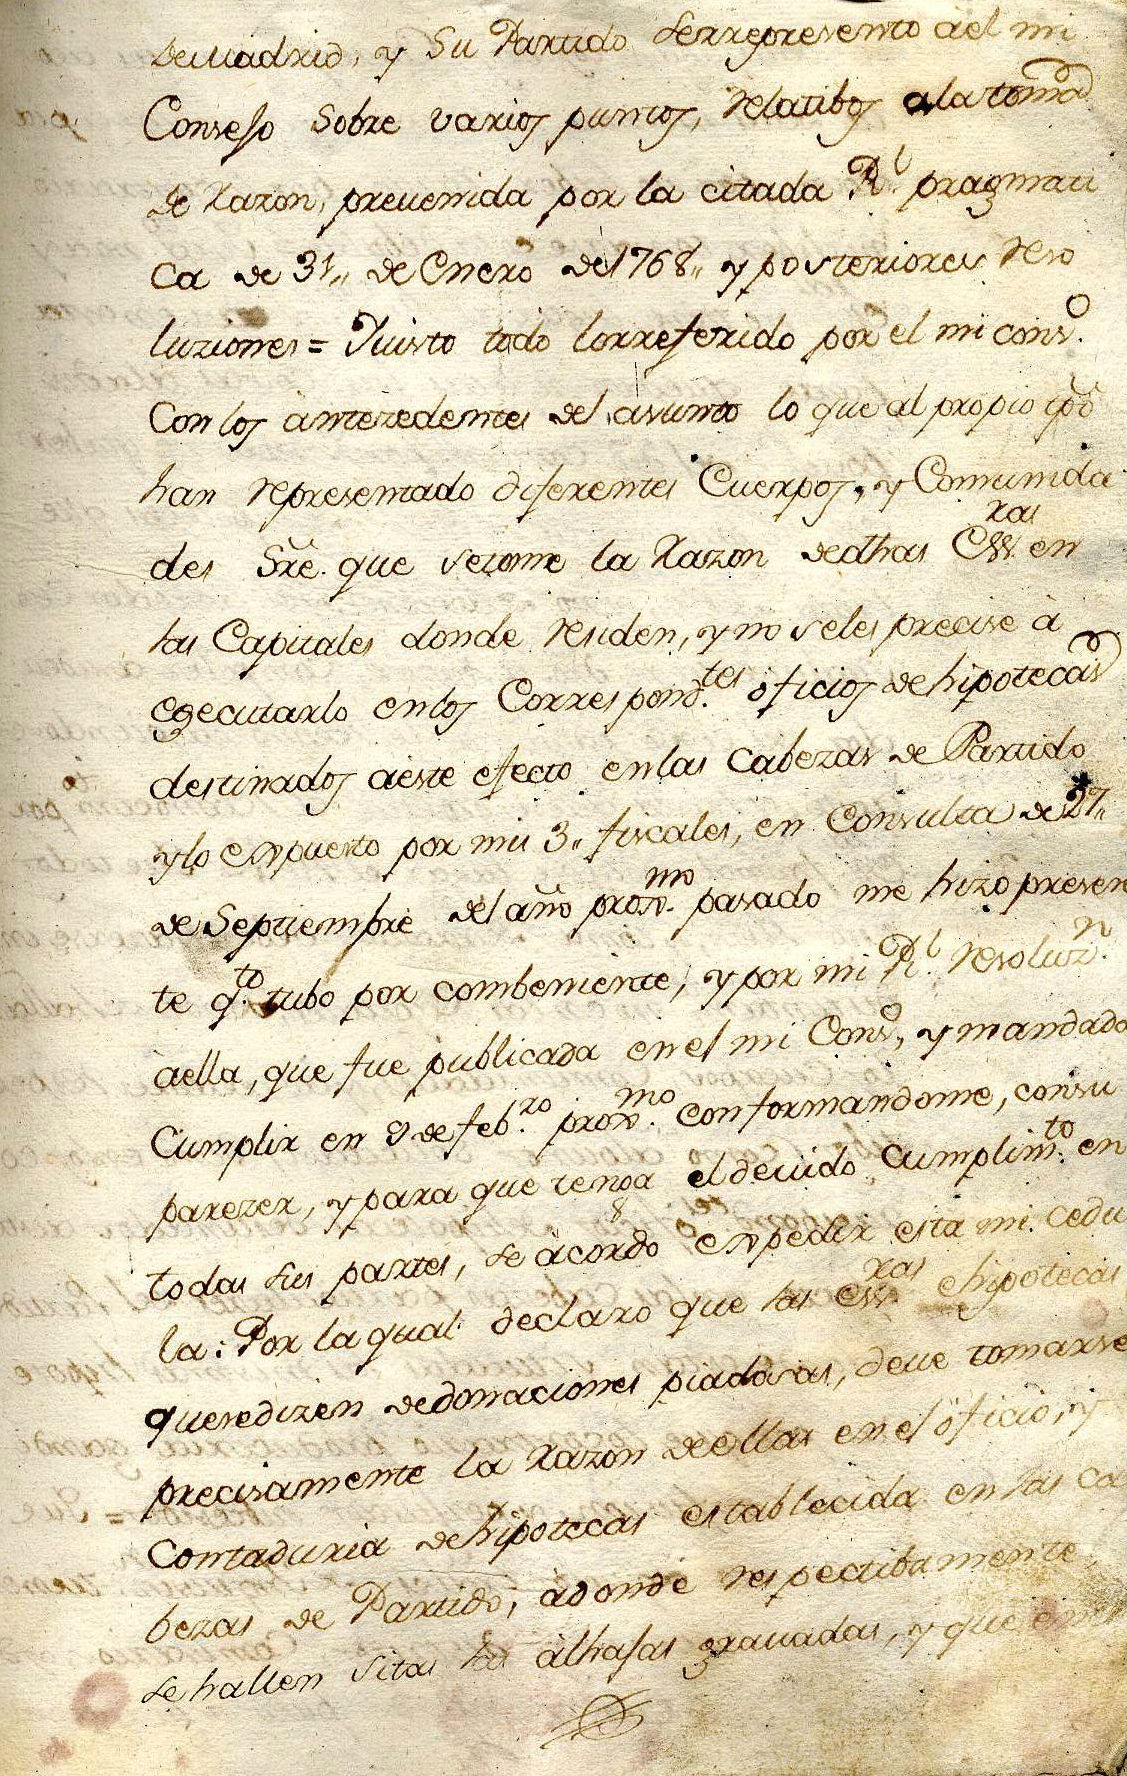 de Madrid, y Su Partido serrepresento àel mi
Consejo Sobre varios puntos, relatibos alatoma
de razon, preuenida por la citada Rl. pragmati
ca de 31,, de Enero de 1768,, y posteriores reso
luziones = Vuisto todo lorreferido por el mi Conso.
Con los àntezedentes del asunto lo que al propio tpõ
han representado diferentes Cuerpos, y Comunida
des Sr̃e. que setome la Razon dedhas Essras en
las Capitales donde residen, y no seles precise à
egecutarlo enlos Correspond.tes oficios dehipotecas
destinados àeste efecto enlas Cabezas de Partido
ylo expuesto por mis 3,, fiscales, en Consulta de 27,,
de Septiembre del año prox.mo pasado me hizo presen
te q.to tubo por combeniente, y por mi Rl. resoluz.n
àella, que fue publicada en el mi Conso, y mandado
Cumplir en 9 de feb.ro prox.mo conformandome, consu
parezer, y para que tenga el deuido Cumplim.to en
todas sus partes, se àcordo expedir esta mi Cedu
la: Por la qual declaro que las Essras ehipotecas
quesedizen dedonaciones piadosas, deue tomarse
precisamente la Razon deellas en el òficio, y
Contaduria dehipotecas establecida en las Ca
bezas de Partido, àdonde respectibamente
se hallen sitas las àlhajas grauadas, y que